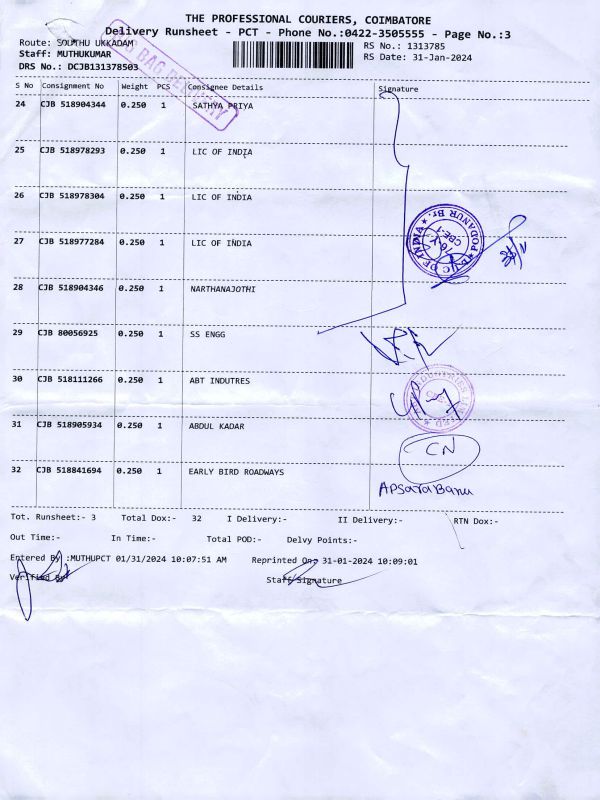 THE PROFESSIONAL COURIERS, COIMBATORE
Delivery Runsheet - PCT - Phone No.:0422-3505555 - Page No.:3
Route: SOUTHU UKKADAM
RS No.: 1313785
Staff: MUTHUKUMAR
RS Date: 31-Jan-2024
DRS No.: DCJB131378503
BAG DELIVERY
S No Consignment No Weight PCS Consignee Details Signature
24 CJB 518904344 0.250 1 SATHYA PRIYA
25 CJB 518978293 0.250 1 LIC OF INDIA
26 CJB 518978304 0.250 1 LIC OF INDIA
27 CJB 518977284 0.250 1 LIC OF INDIA
LIC OF INDIA ★ PODANUR Br. ★
CBE-1
28 CJB 518904346 0.250 1 NARTHANAJOTHI
29 CJB 80056925 0.250 1 SS ENGG
30 CJB 518111266 0.250 1 ABT INDUTRES
31 CJB 518905934 0.250 1 ABDUL KADAR
CN
32 CJB 518841694 0.250 1 EARLY BIRD ROADWAYS
Apsara Banu
Tot. Runsheet:- 3 Total Dox:- 32 I Delivery:- II Delivery:- RTN Dox:-
Out Time:- In Time:- Total POD:- Delvy Points:-
Entered By :MUTHUPCT 01/31/2024 10:07:51 AM Reprinted On: 31-01-2024 10:09:01
Verified By Staff Signature